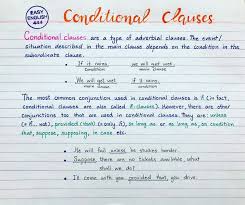 EASY ENGLISH 444
Conditional Clauses
Conditional clauses are a type of adverbial clauses. The event/
situation described in the main clause depends on the condition in the
subordinate clause.
If it rains, we will get wet.
condition main clause
We will get wet, if it rains.
main clause condition
The most common conjunction used in conditional clauses is if (in fact,
conditional clauses are also called if clauses). However, there are other
conjunctions too that are used in conditional clauses. They are: unless
(= if not), provided (that) (= only if), so long as or as long as, on condition
that, suppose, supposing, in case etc.
He will fail unless he studies harder.
Suppose, there are no tickets available, what
shall we do?
I'll come with you provided that, you drive.